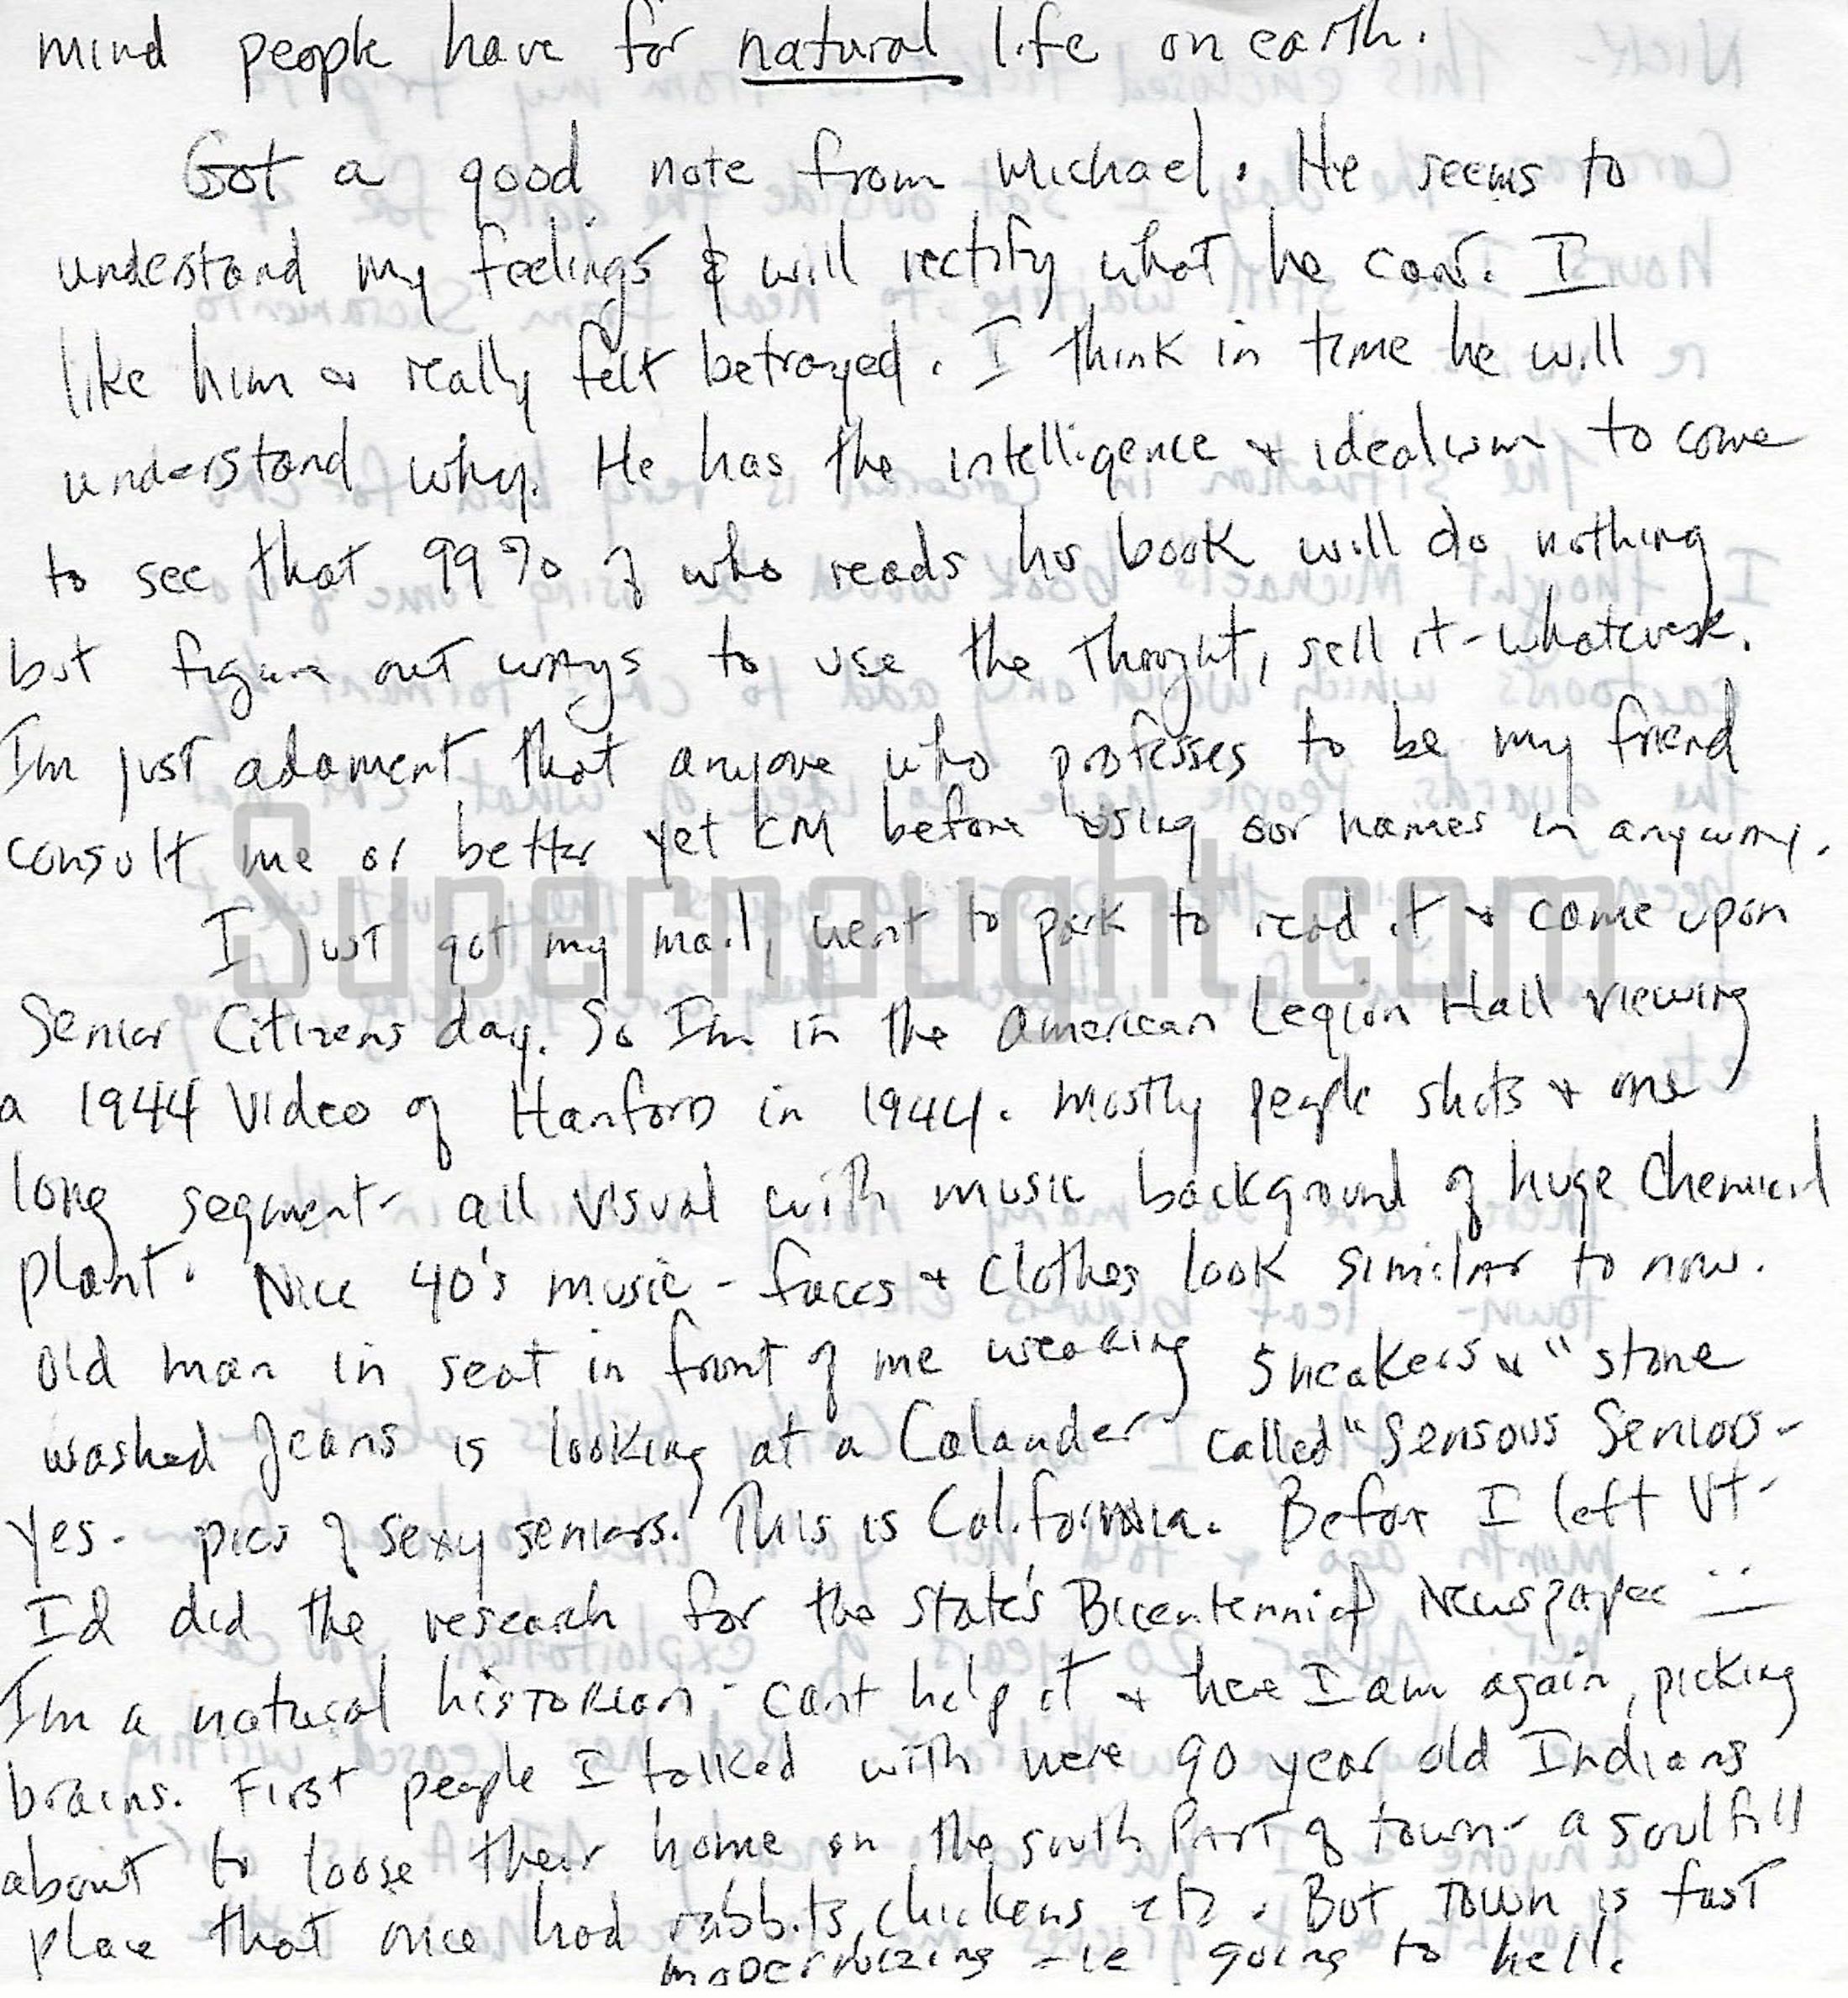 mind people have for natural life on earth.
Got a good note from Michael. He seems to
understand my feelings & will rectify what he can. I
like him & really felt betrayed. I think in time he will
understand why. He has the intelligence & idealism to come
to see that 99% of who reads his book will do nothing
but figure out ways to use the thought, sell it - whatever.
Im just adament that anyone who professes to be my friend
consult me or better yet CM before using our names in anyway.
I just got my mail, went to park to read it & came upon
Senior Citizens day. So Im in the American Legion Hall viewing
a 1944 Video of Hanford in 1944. Mostly people shots & one
long segment - all visual with music background of huge Chemical
plant. Nice 40's music - faces & clothes look similar to now.
Old man in seat in front of me wearing sneakers & "stone
washed Jeans is looking at a Calander called "Sensous Seniors -
Yes. pics of sexy seniors. This is California. Before I left Vt -
Id did the research for the state's Bicentennial Newspaper
Im a natural historian - cant help it & here I am again, picking
brains. First people I talked with were 90 year old Indians
about to loose their home on the south Part of town - a soulfill
place that once had rabbits, chickens etc. But town is fast
modernizing - ie going to hell.
Supernaught.com